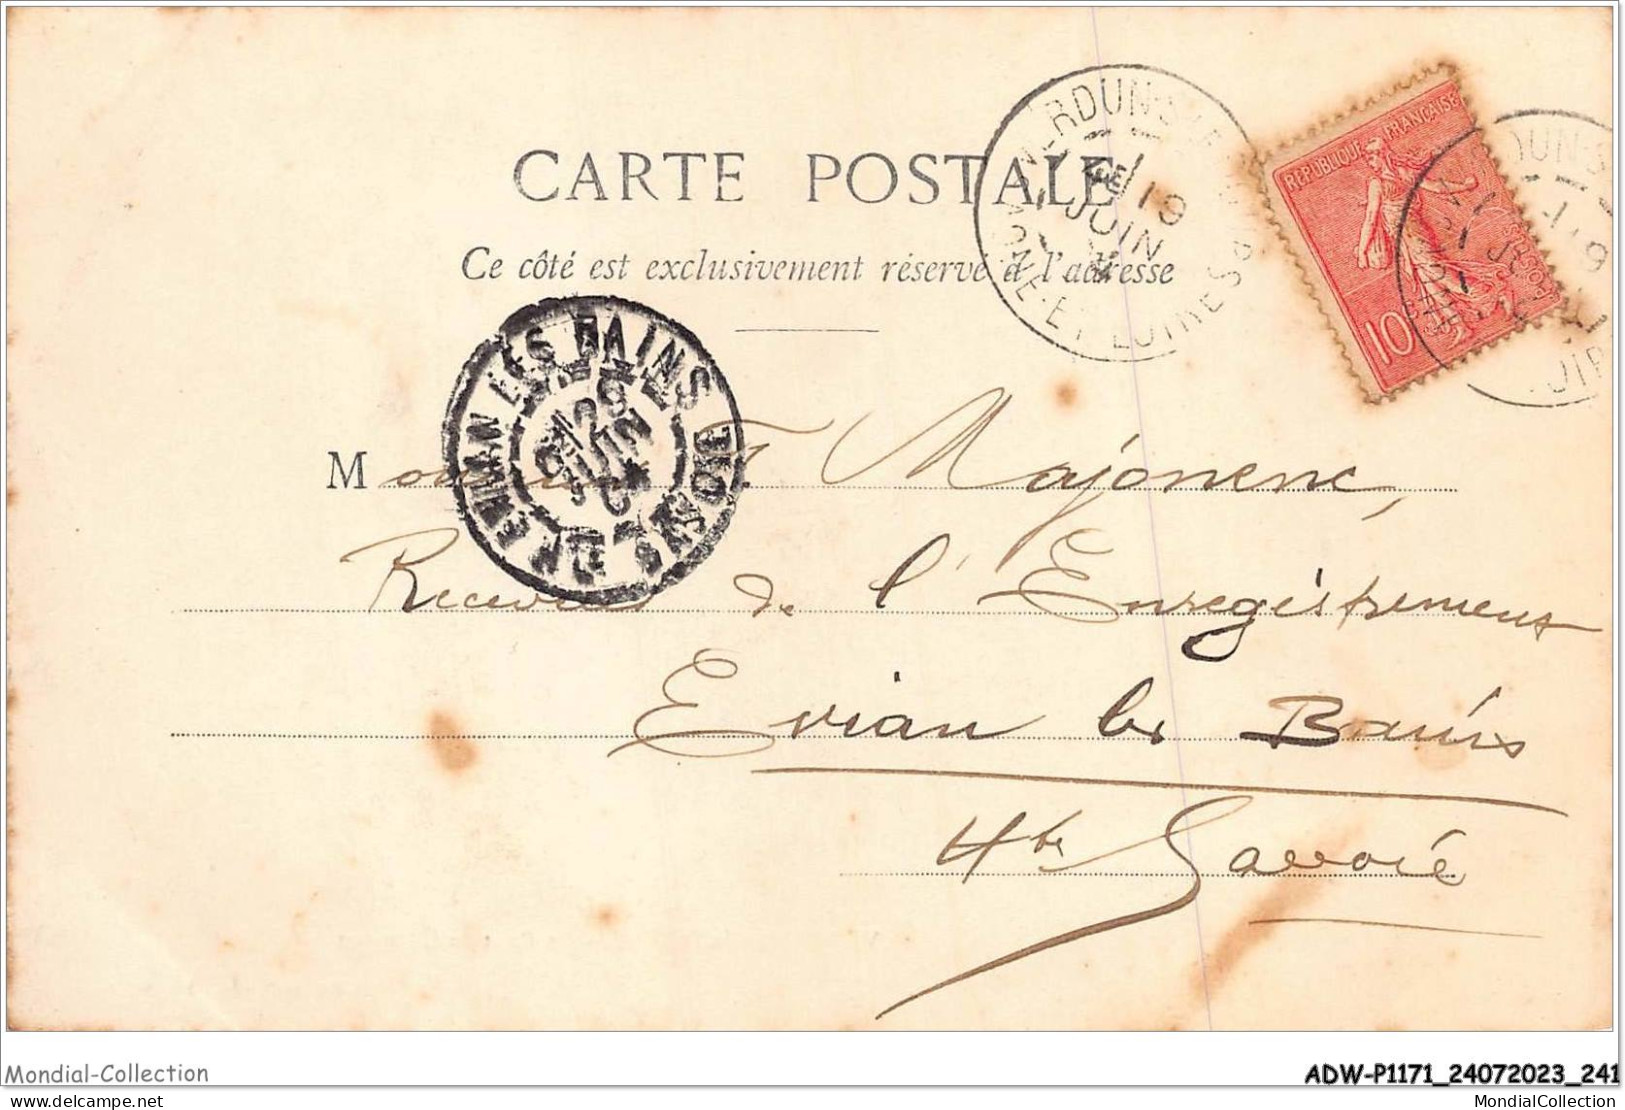 CARTE POSTALE
Ce côté est exclusivement réservé à l'adresse
VERDUN-S
SAONE-ET-LOIRE
4E
19
JUIN
REPUBLIQUE FRANÇAISE
10
EVIAN LES BAINS
HTE SAVOIE
JUIN
Monsieur F Majonenc,
Receveur de l'Enregistrement
Evian les Bains
Hte Savoie
Mondial-Collection
ADW-P1171_24072023_241
delcampe.net
MondialCollection